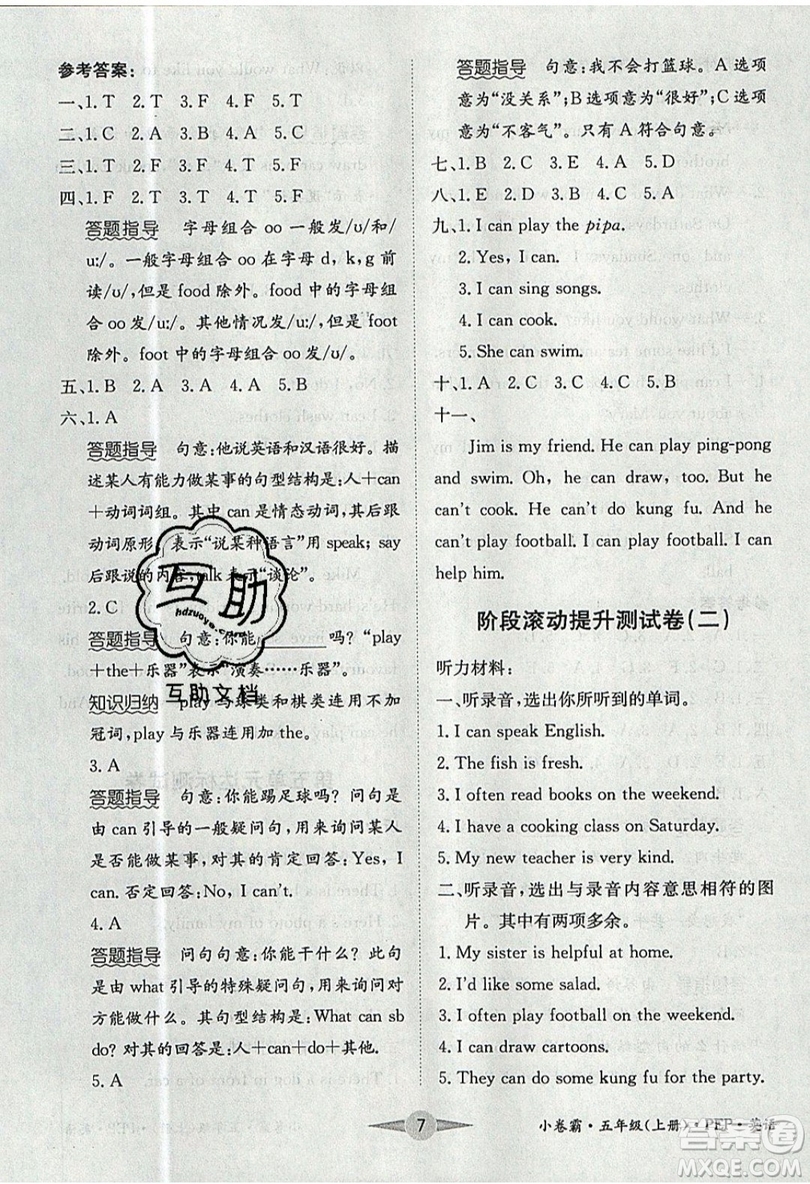 参考答案：
一、1. T　2. T　3. F　4. F　5. T
二、1. C　2. A　3. B　4. A　5. C
三、1. T　2. F　3. F　4. T　5. T
四、1. F　2. T　3. T　4. F　5. F
答题指导　字母组合 oo 一般发/ʊ/和/
u:/。一般字母组合 oo 在字母 d, k, g 前
读/ʊ/，但是 food 除外。food 中的字母组
合 oo 发/u:/。其他情况发/u:/，但是 foot
除外。foot 中的字母组合 oo 发/ʊ/。
五、1. B　2. A　3. A　4. B　5. B
六、1. A
答题指导　句意：他说英语和汉语很好。描
述某人有能力做某事的句型结构是：人＋can
＋动词词组。其中 can 是情态动词，其后跟
动词原形。表示“说某种语言”用 speak；say
后跟说的内容，talk 表示“谈论”。
2. C
答题指导　句意：你能　　　　吗？“play
＋the＋乐器”表示“演奏……乐器”。
知识归纳　play 与球类和棋类连用不加
冠词，play 与乐器连用加 the。
3. A
答题指导　句意：你能踢足球吗？问句是
由 can 引导的一般疑问句，用来询问某人
是否能够做某事，对其的肯定回答：Yes, I
can. 否定回答：No, I can't.
4. A
答题指导　问句句意：你能干什么？此句
是由 what 引导的特殊疑问句，用来询问对
方能做什么。其句型结构是：What can sb
do? 对其的回答是：人＋can＋do＋其他.
5. A
答题指导　句意：我不会打篮球。A 选项
意为“没关系”；B 选项意为“很好”；C 选项
意为“不客气”。只有 A 符合句意。
七、1. B　2. C　3. E　4. A　5. D
八、1. F　2. C　3. A　4. B　5. D
九、1. I can play the pipa.
2. Yes, I can.
3. I can sing songs.
4. I can cook.
5. She can swim.
十、1. A　2. A　3. B　4. B　5. A
十一、
Jim is my friend. He can play ping-pong
and swim. Oh, he can draw, too. But he
can't cook. He can do kung fu. And he
can't play football. I can play football. I can
help him.
阶段滚动提升测试卷（二）
听力材料：
一、听录音，选出你所听到的单词。
1. I can speak English.
2. The fish is fresh.
3. I often read books on the weekend.
4. I have a cooking class on Saturday.
5. My new teacher is very kind.
二、听录音，选出与录音内容意思相符的图
片。其中有两项多余。
1. My sister is helpful at home.
2. I'd like some salad.
3. I often play football on the weekend.
4. I can draw cartoons.
5. They can do kung fu for the party.
互助
hdzuoye.com
互助文档
7
小卷霸·五年级（上册）·PEP·英语
答案圈
MXQE.COM